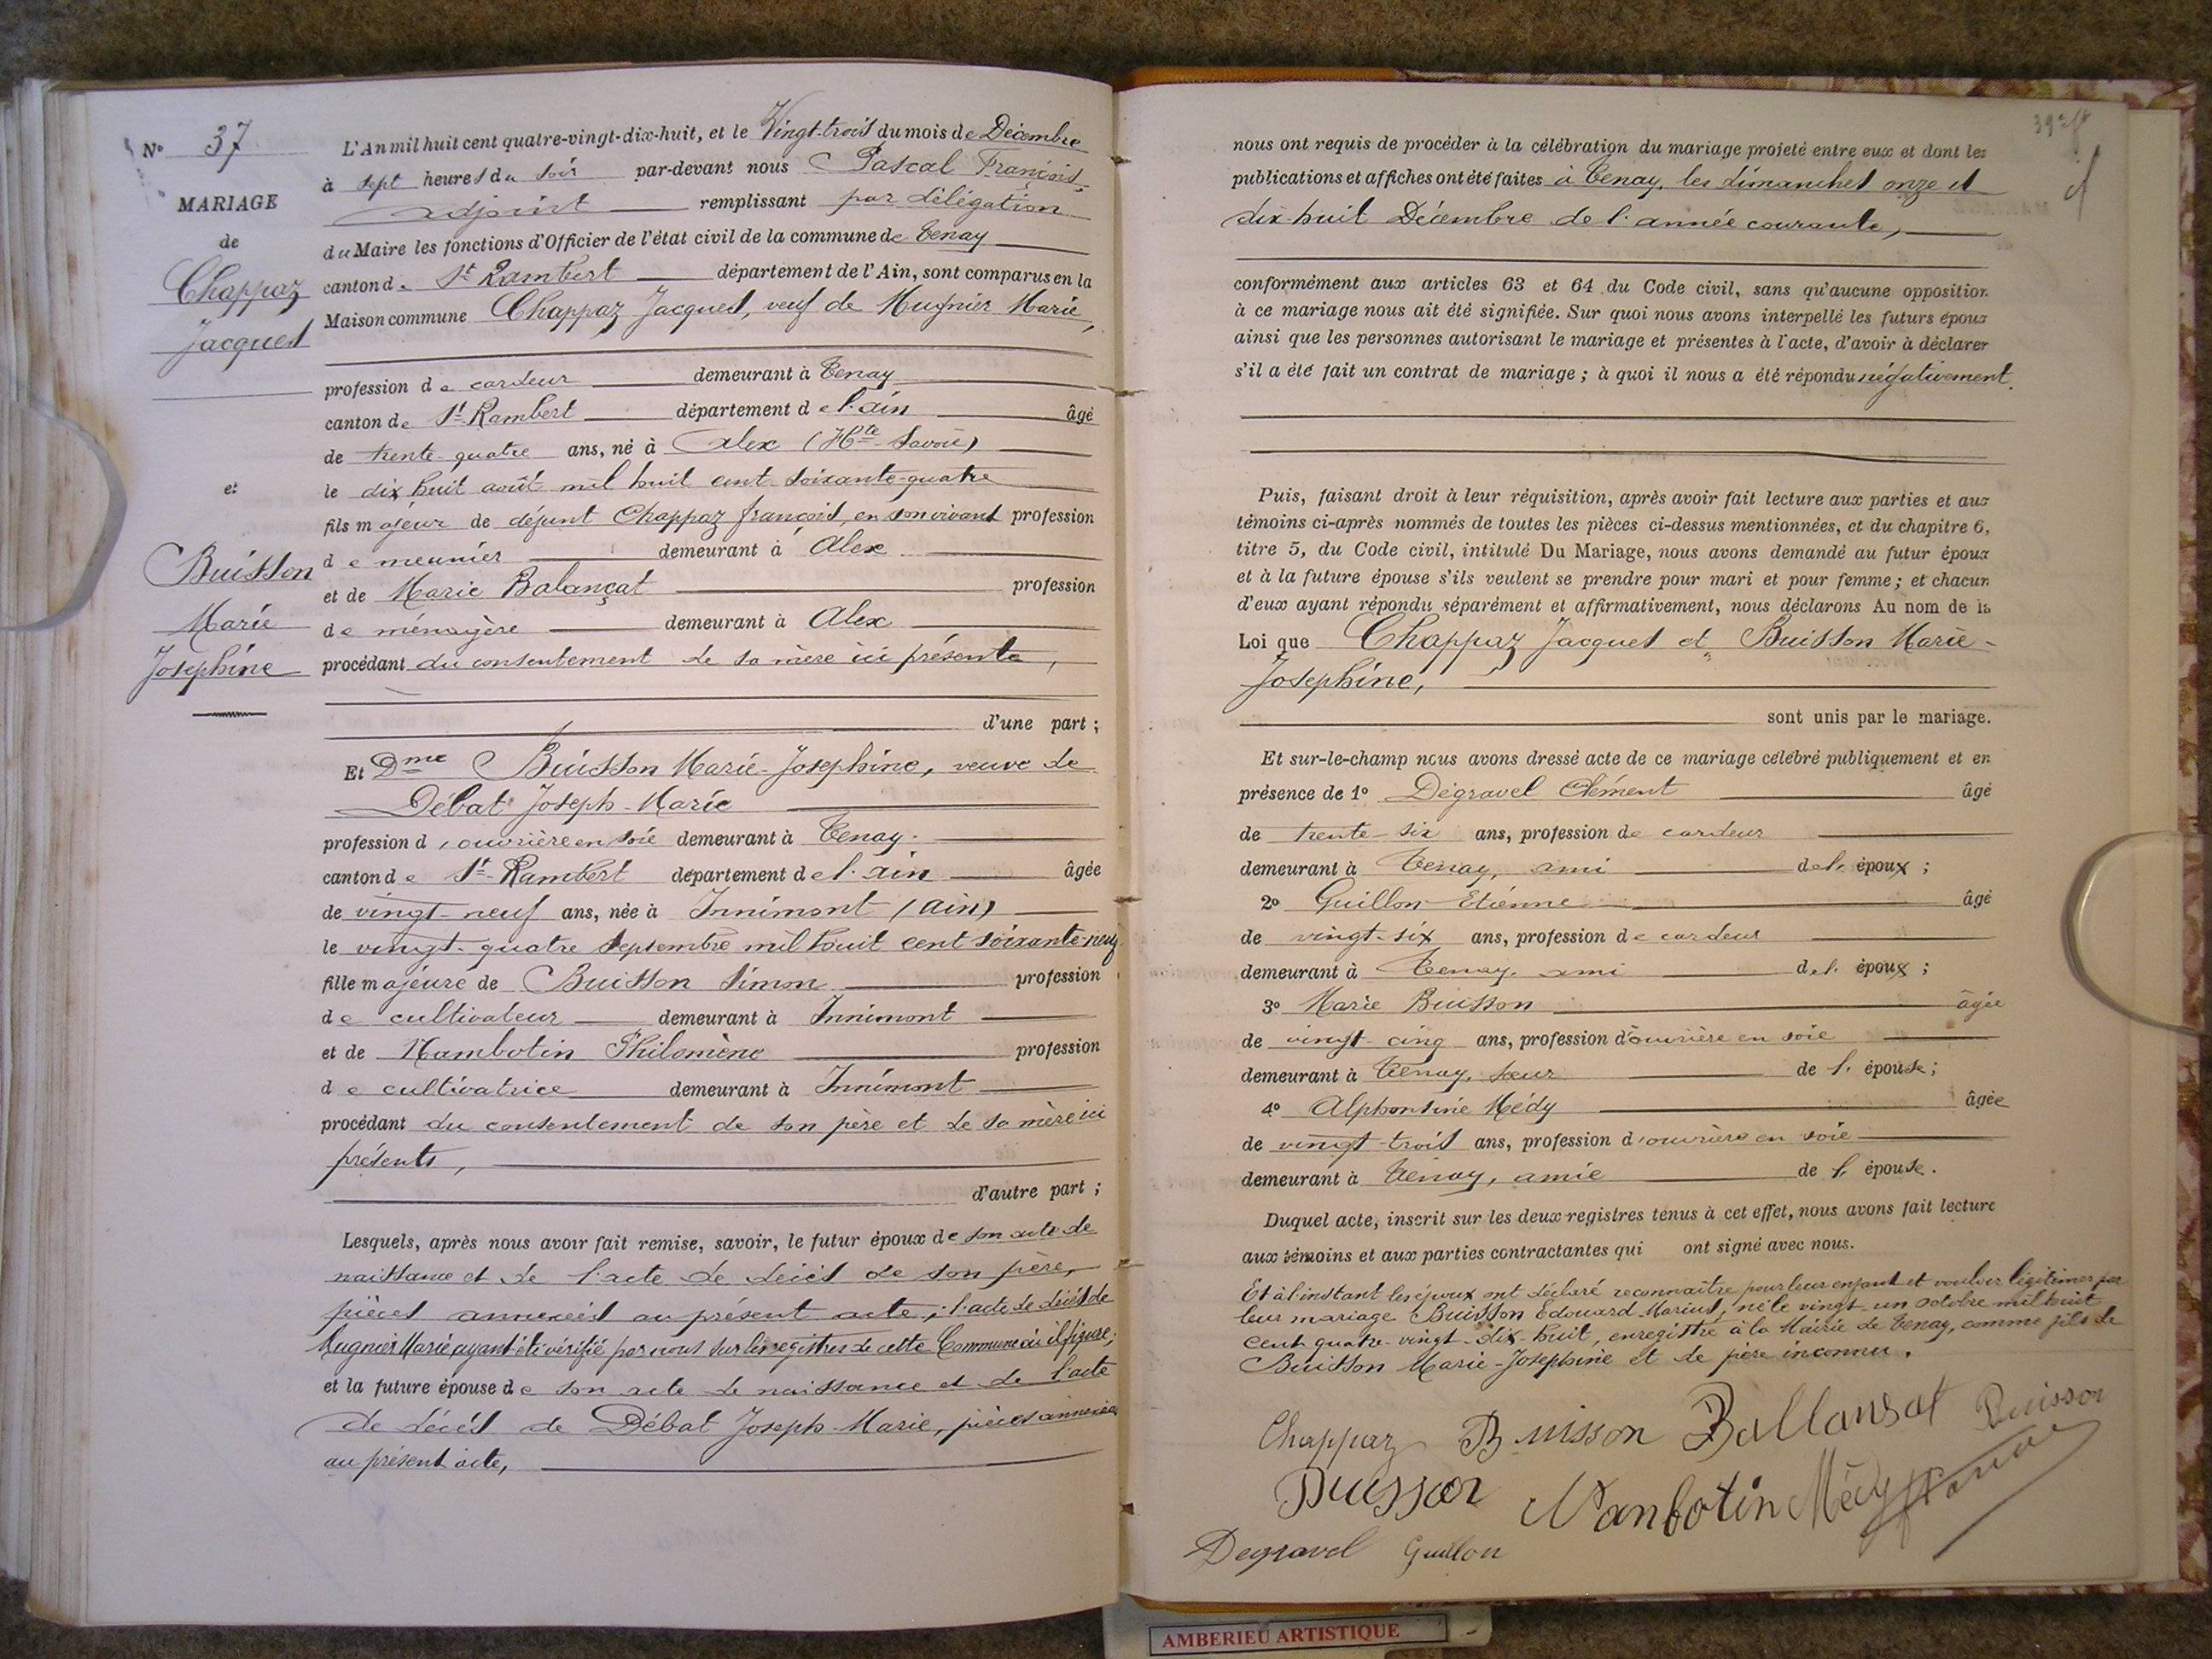 N° 37
MARIAGE
de
Chappaz
Jacques
et
Buisson
Marie
Josephine
L'An mil huit cent quatre-vingt-dix-huit, et le Vingt-trois du mois de Décembre
à sept heures du soir par-devant nous Pascal François,
adjoint remplissant par délégation
du Maire les fonctions d'Officier de l'état civil de la commune de Tenay
canton de St Rambert département de l'Ain, sont comparus en la
Maison commune Chappaz Jacques, veuf de Mugnier Marie,
profession de cardeur demeurant à Tenay
canton de St-Rambert département de l'ain âgé
de trente-quatre ans, né à Alex (Hte-Savoie)
le dix huit août mil huit cent soixante-quatre
fils majeur de défunt Chappaz françois, en son vivant profession
de meunier demeurant à Alex
et de Marie Balançat profession
de ménagère demeurant à Alex
procédant du consentement de sa mère ici présente,
d'une part ;
Et Dme Buisson Marie-Josephine, veuve de
Débat Joseph-Marie
profession d'ouvrière en soie demeurant à Tenay
canton de St-Rambert département de l'ain âgée
de vingt-neuf ans, née à Innimont (Ain)
le vingt-quatre Septembre mil huit cent soixante-neuf
fille majeure de Buisson Simon profession
de cultivateur demeurant à Innimont
et de Nambotin Philomène profession
de cultivatrice demeurant à Innimont
procédant du consentement de son père et de sa mère ici
présents,
d'autre part ;
Lesquels, après nous avoir fait remise, savoir, le futur époux de son acte de
naissance et de l'acte de décès de son père,
pièces annexées au présent acte ; l'acte de décès de
Mugnier Marie ayant été vérifié par nous sur les registres de cette Commune où il figure ;
et la future épouse de son acte de naissance et de l'acte
de décès de Débat Joseph-Marie, pièces annexées
au présent acte,
nous ont requis de procéder à la célébration du mariage projeté entre eux et dont les
publications et affiches ont été faites à Tenay, les dimanches onze et
dix-huit Décembre de l'année courante,
conformément aux articles 63 et 64 du Code civil, sans qu'aucune opposition
à ce mariage nous ait été signifiée. Sur quoi nous avons interpellé les futurs époux
ainsi que les personnes autorisant le mariage et présentes à l'acte, d'avoir à déclarer
s'il a été fait un contrat de mariage ; à quoi il nous a été répondu négativement.
Puis, faisant droit à leur réquisition, après avoir fait lecture aux parties et aux
témoins ci-après nommés de toutes les pièces ci-dessus mentionnées, et du chapitre 6,
titre 5, du Code civil, intitulé Du Mariage, nous avons demandé au futur époux
et à la future épouse s'ils veulent se prendre pour mari et pour femme ; et chacun
d'eux ayant répondu séparément et affirmativement, nous déclarons Au nom de la
Loi que Chappaz Jacques et Buisson Marie-
Josephine,
sont unis par le mariage.
Et sur-le-champ nous avons dressé acte de ce mariage célébré publiquement et en
présence de 1° Dégravel Clément âgé
de trente-six ans, profession de cardeur
demeurant à Tenay, ami de l'époux ;
2° Guillon Etienne âgé
de vingt-six ans, profession de cardeur
demeurant à Tenay, ami de l'époux ;
3° Marie Buisson âgée
de vingt-cinq ans, profession d'ouvrière en soie
demeurant à Tenay, sœur de l'épouse ;
4° Alphonsine Médy âgée
de vingt-trois ans, profession d'ouvrière en soie
demeurant à Tenay, amie de l'épouse.
Duquel acte, inscrit sur les deux registres tenus à cet effet, nous avons fait lecture
aux témoins et aux parties contractantes qui ont signé avec nous.
Et à l'instant les époux ont déclaré reconnaître pour leur enfant et vouloir légitimer par
leur mariage Buisson Edouard-Marius, né le vingt-un octobre mil huit
cent quatre-vingt-dix-huit, enregistré à la Mairie de Tenay, comme fils de
Buisson Marie-Josephine et de père inconnu.
Chappaz Buisson Ballansat Buisson
Buisson Nanbotin Médy
Degravel Guillon
AMBERIEU ARTISTIQUE